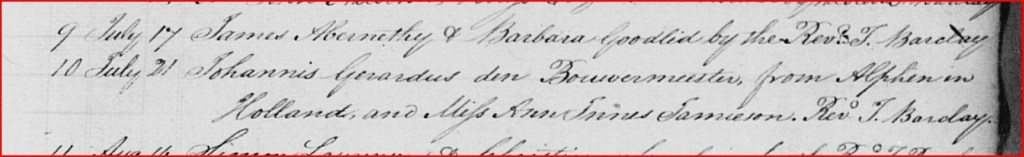 9 July 17 James Abernethy & Barbara Goodlid by the Revd. T. Barclay
10 July 21 Johannis Gerardus den Bouwermeister, from Alphen in
Holland, and Miss Ann Innes Jamieson. Revd. T. Barclay.
11 Aug 14